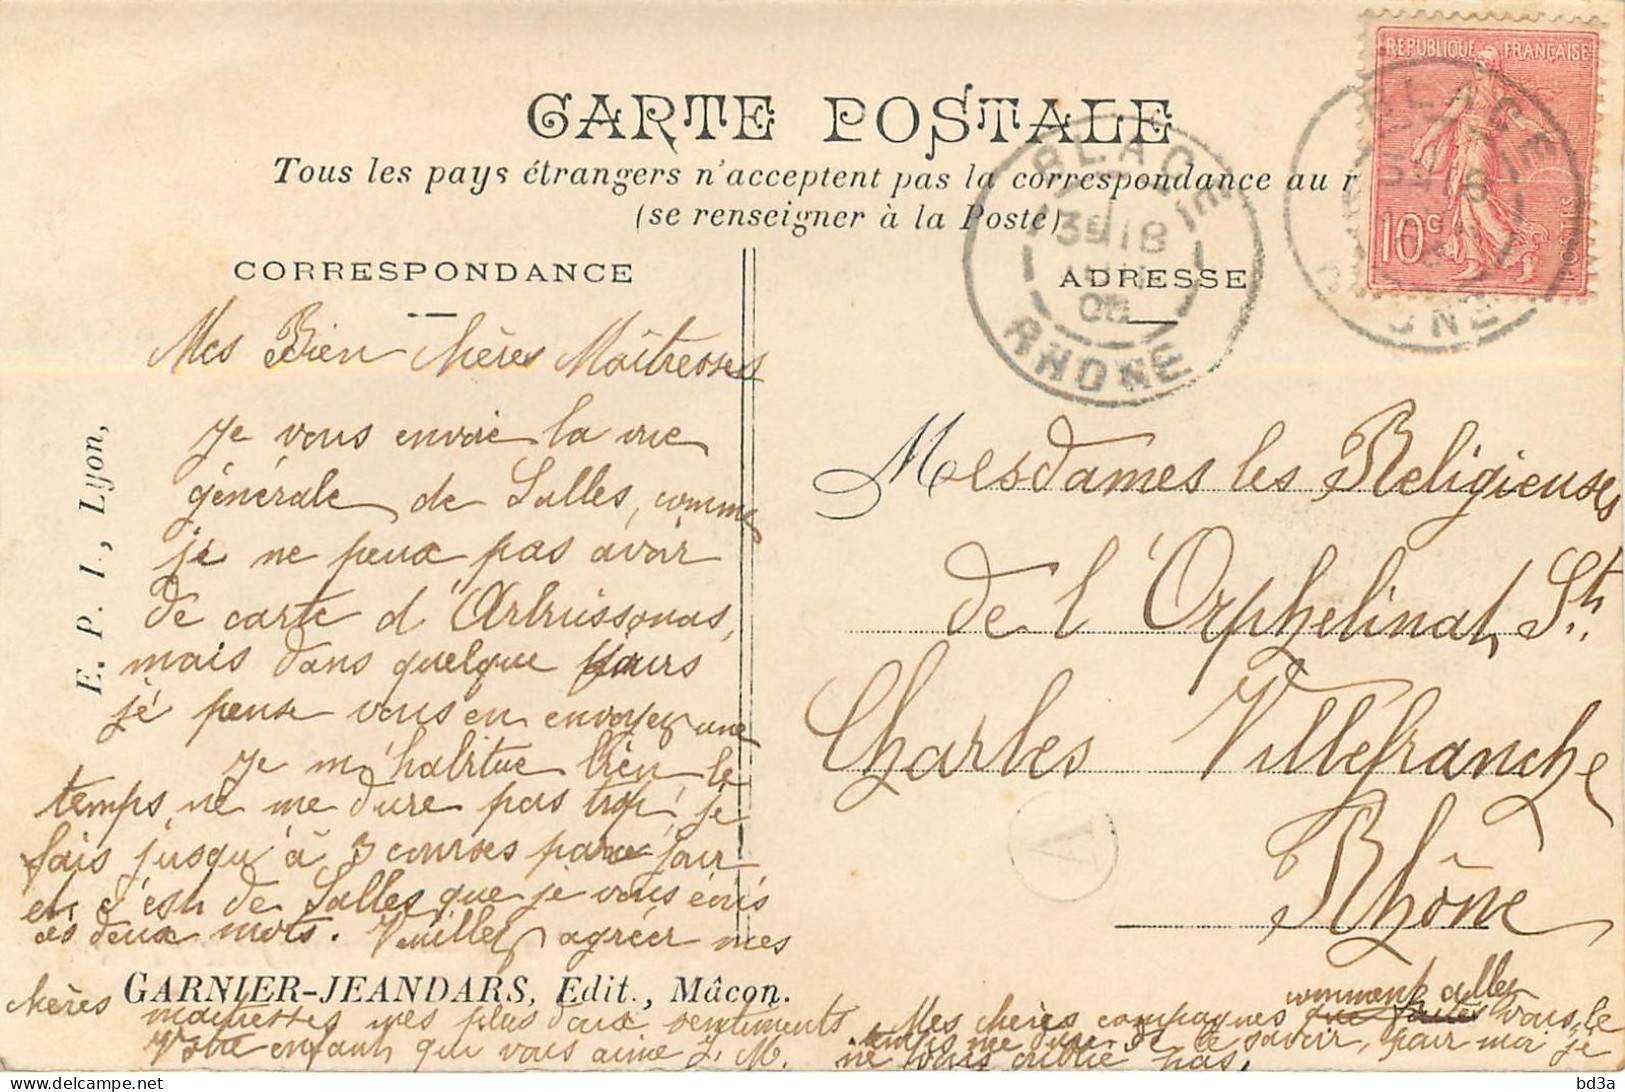 REPUBLIQUE FRANÇAISE
10c
POSTES
CARTE POSTALE
Tous les pays étrangers n'acceptent pas la correspondance au r
(se renseigner à la Poste)
BLACÉ
RHONE
BLACÉ
RHONE
CORRESPONDANCE
ADRESSE
E. P. I., Lyon,
Mes Bien chères Maîtresses
Je vous envoie la vue
générale de Salles, comme
je ne peux pas avoir
de carte d'Arbuissonas,
mais dans quelque jours
je pense vous en envoyer une
Je m'habitue bien le
temps ne me dure pas trop, je
fais jusqu'à 3 courses par jour
et c'est de Salles que je vous écris
ces deux mots. Veuillez agréer mes
chères
GARNIER-JEANDARS, Edit., Mâcon.
maîtresses mes plus doux sentiments
Votre enfant qui vous aime J. M.
Mesdames les Religieuses
de l'Orphelinat St.
Charles Villefranche
Rhône
A
comment allez
Mes chères compagnes vous, le
temps me dure de le savoir, pour moi je
ne vous oublie pas,
bd3a